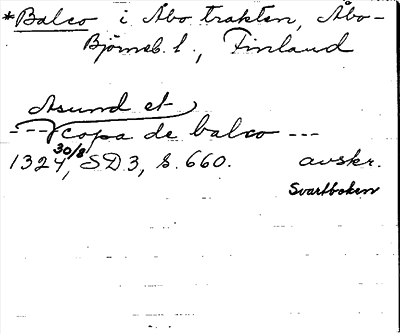 *Balco i Åbo trakten, Åbo-
Björneb. l., Finland
Asund et
--- copa de balco ---
1324 30/8, SD 3, s. 660. avskr.
Svartboken